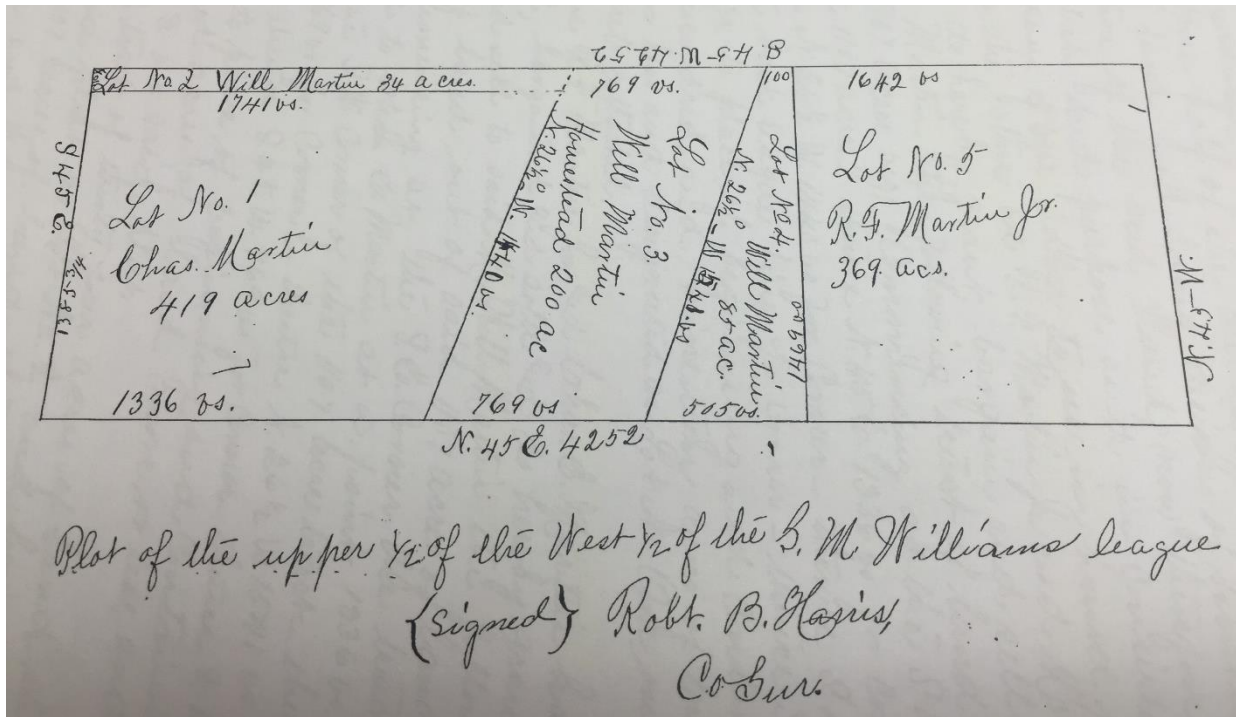 S. 45-W. 4252
Lot No 2 Will Martin 34 acres.
1741 vs.
769 vs.
100
1642 vs
S 45 E.
1385 3/4
Lot No. 1
Chas. Martin
419 acres
1336 vs.
N. 26½° W. 1440 vs.
Homestead 200 ac
Will Martin
Lot No. 3
769 vs
N. 26½°-W
Will Martin
85 ac.
Lot No 4.
505 vs.
1469 vs
Lot No. 5
R. F. Martin Jr.
369 acs.
N. 45-W
N. 45 E. 4252
Plot of the upper ½ of the West ½ of the S. M Williams league
{Signed} Robt. B. Harris,
Co Sur.